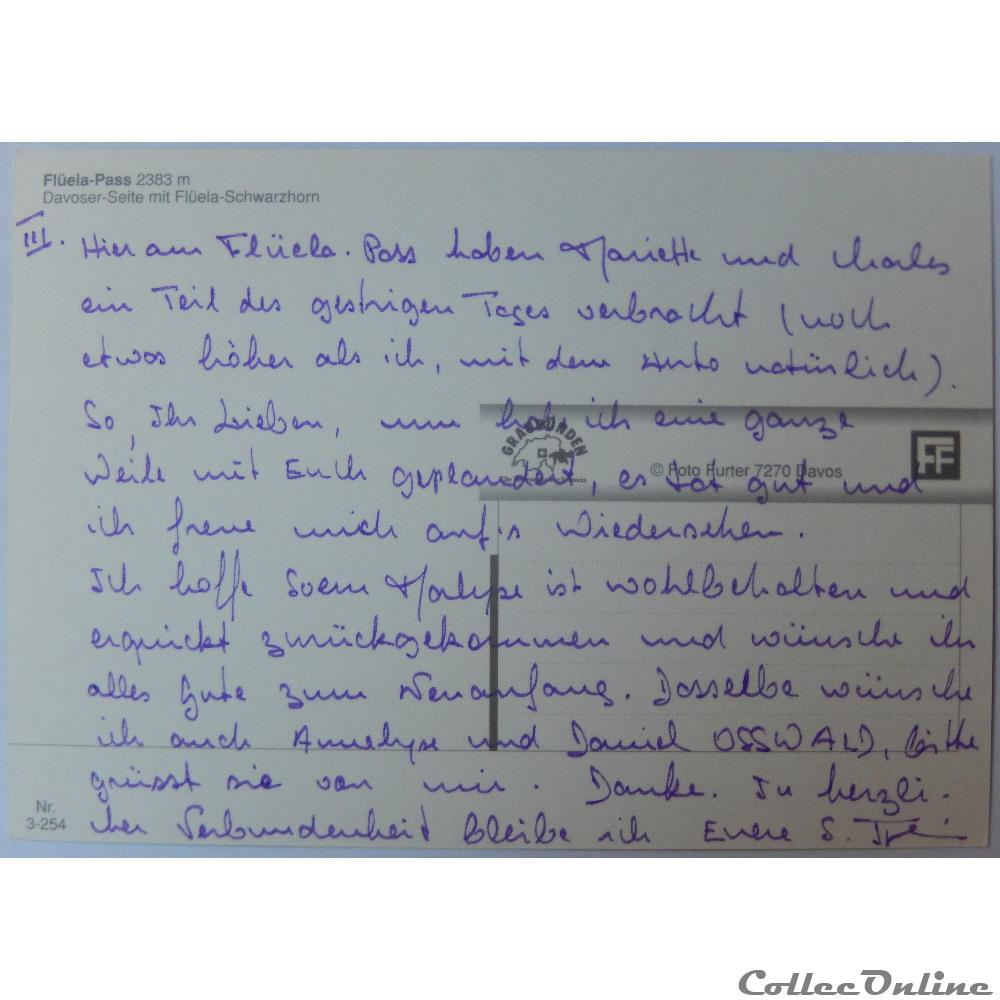 Flüela-Pass 2383 m
Davoser-Seite mit Flüela-Schwarzhorn
III. Hier am Flüela-Pass haben Mariette und Charles
ein Teil des gestrigen Tages verbracht (noch
etwas höher als ich, mit dem Auto natürlich).
So, Ihr Lieben, nun habe ich eine ganze
Weile mit Euch geplaudert, es tat gut und
ich freue mich auf's Wiedersehen.
Ich hoffe Soeur Marlyse ist wohlbehalten und
erquickt zurückgekommen und wünsche ihr
alles Gute zum Neuanfang. Dasselbe wünsche
ich auch Annelyse und Daniel OSSWALD, bitte
grüsst sie von mir. Danke. In herzli-
cher Verbundenheit bleibe ich Euere S.
GRAUBÜNDEN
© Foto Furter 7270 Davos
FF
Nr.
3-254
CollecOnline